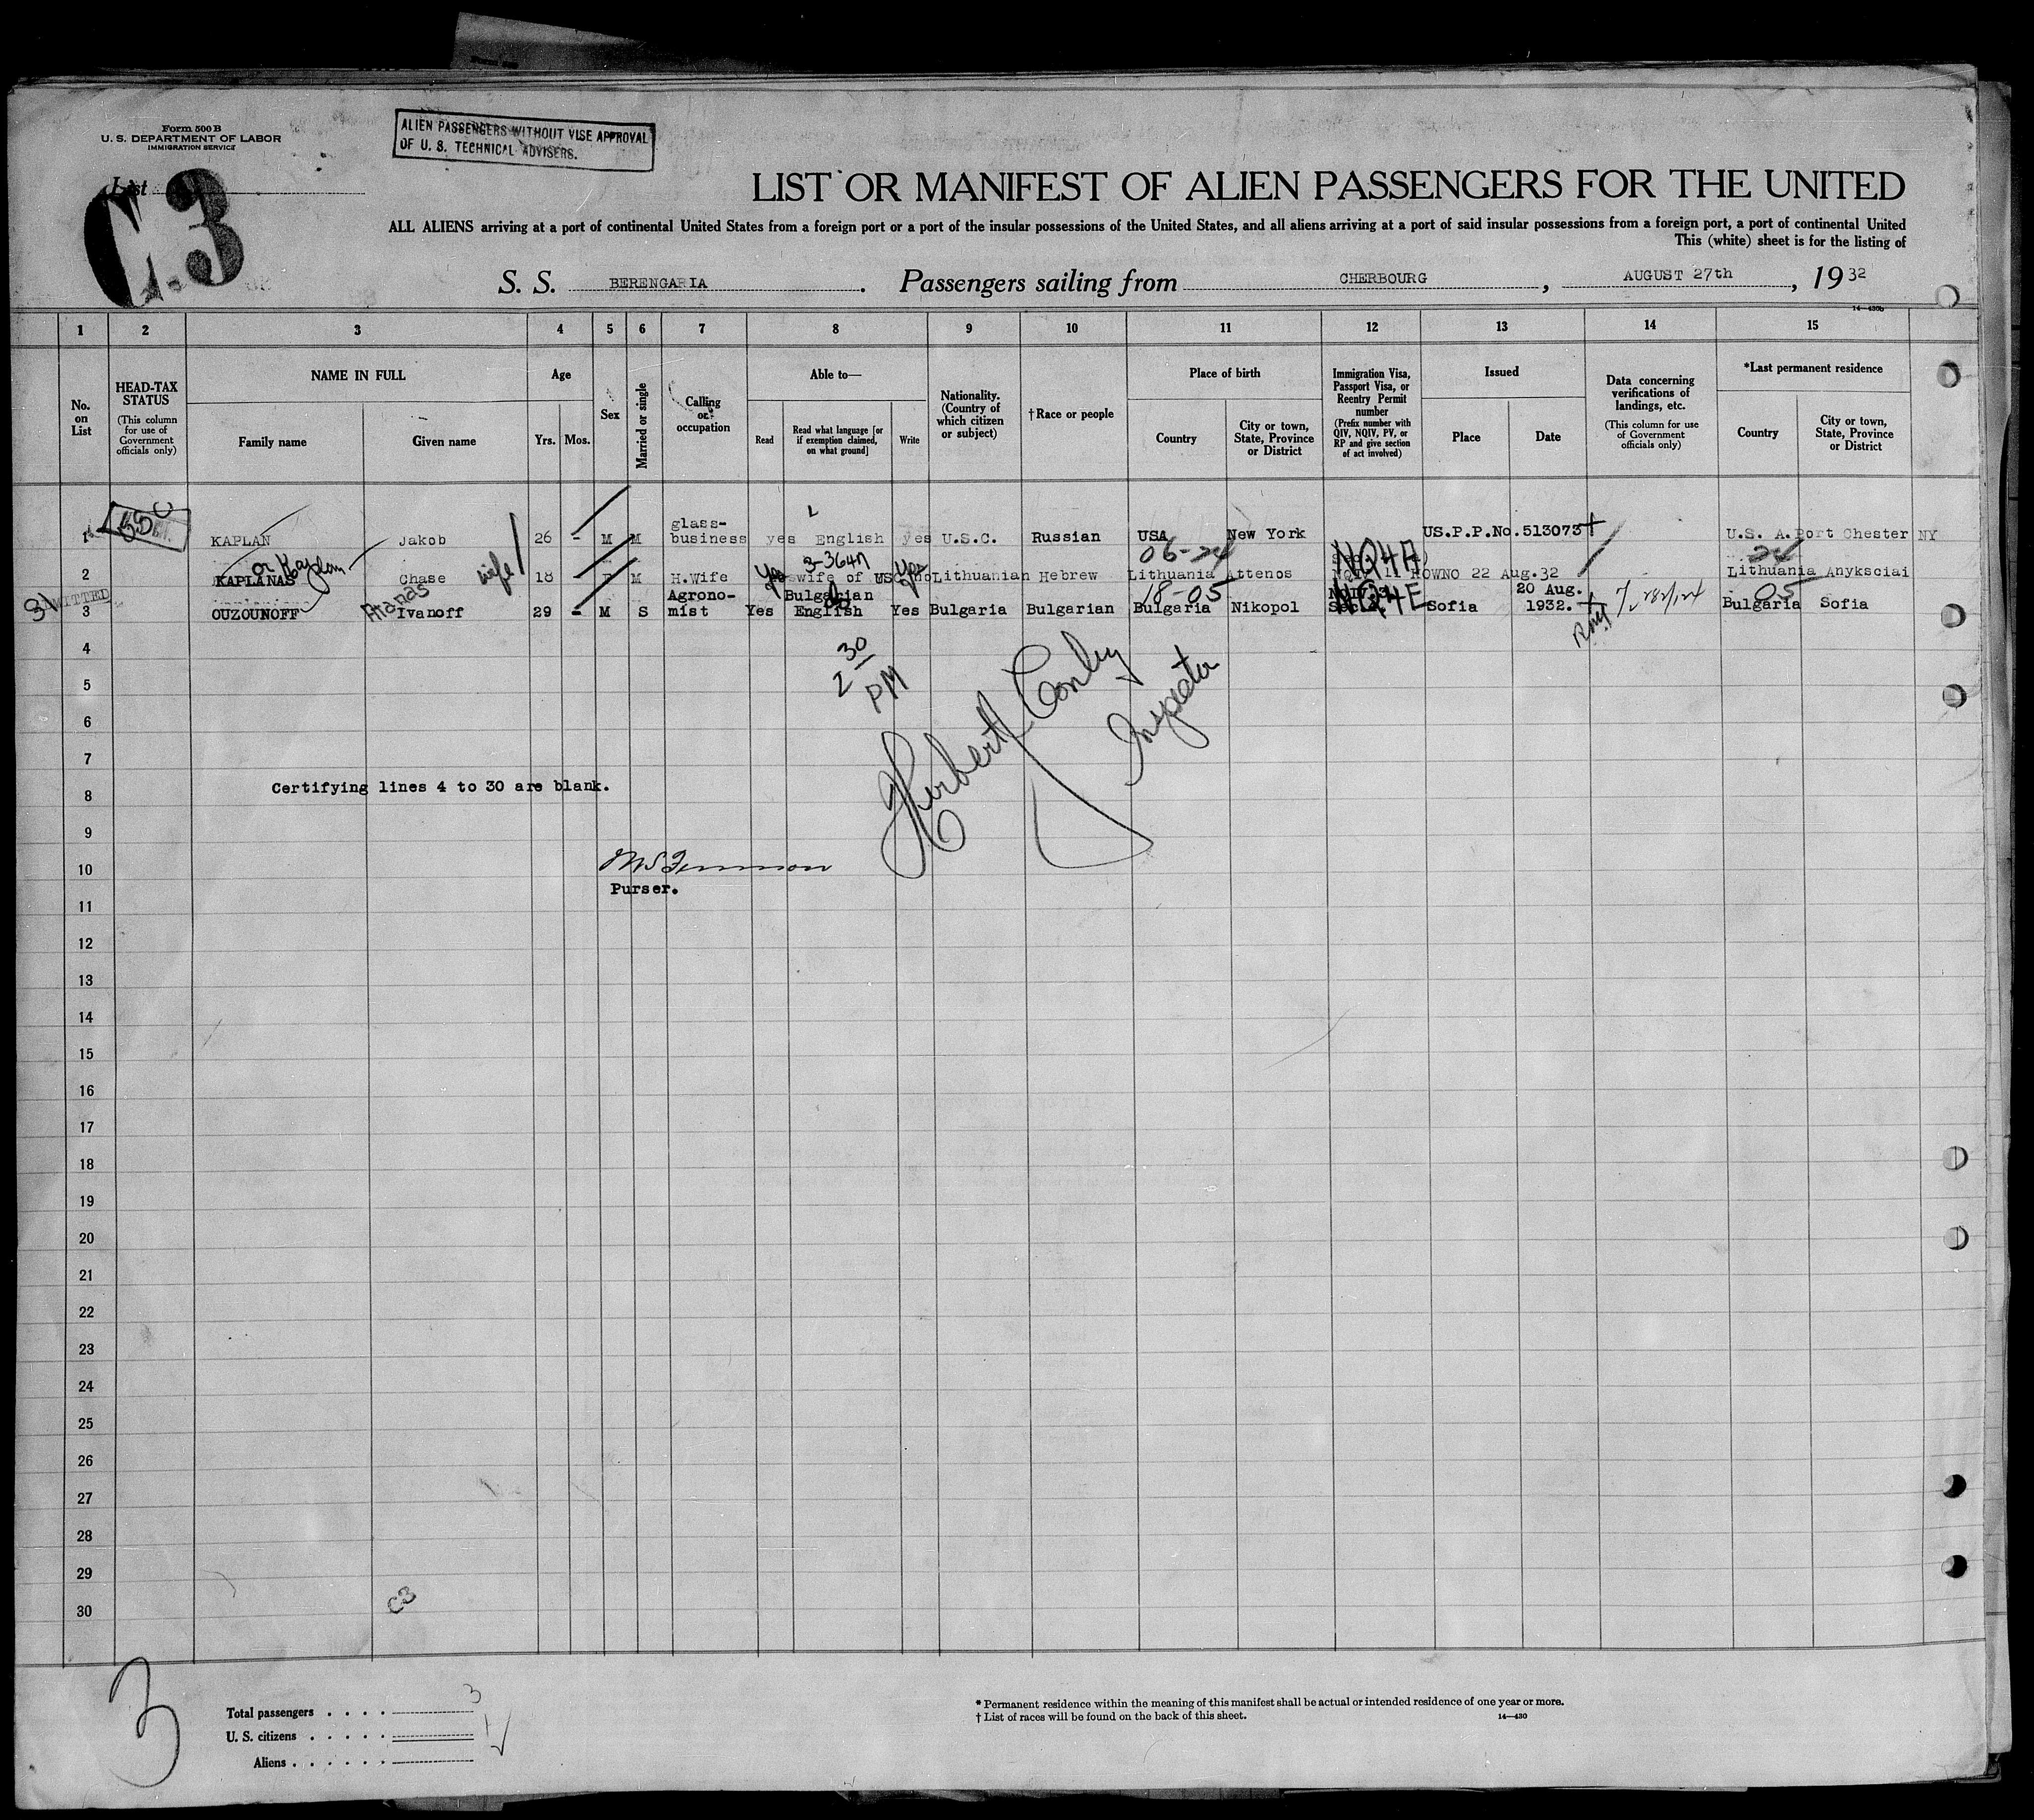 Form 500 B
U. S. DEPARTMENT OF LABOR
IMMIGRATION SERVICE
ALIEN PASSENGERS WITHOUT VISE APPROVAL
OF U. S. TECHNICAL ADVISERS.
List
C.3
LIST OR MANIFEST OF ALIEN PASSENGERS FOR THE UNITED
ALL ALIENS arriving at a port of continental United States from a foreign port or a port of the insular possessions of the United States, and all aliens arriving at a port of said insular possessions from a foreign port, a port of continental United
This (white) sheet is for the listing of
S. S. BERENGARIA. Passengers sailing from CHERBOURG, AUGUST 27th, 19 32
14—430b
1 2 3 4 5 6 7 8 9 10 11 12 13 14 15
No. on List
HEAD-TAX STATUS (This column for use of Government officials only)
NAME IN FULL Family name Given name
Age Yrs. Mos.
Sex
Married or single
Calling or occupation
Able to— Read Read what language [or if exemption claimed, on what ground] Write
Nationality. (Country of which citizen or subject)
†Race or people
Place of birth Country City or town, State, Province or District
Immigration Visa, Passport Visa, or Reentry Permit number (Prefix number with QIV, NQIV, PV, or RP and give section of act involved)
Issued Place Date
Data concerning verifications of landings, etc. (This column for use of Government officials only)
*Last permanent residence Country City or town, State, Province or District
1 KAPLAN Jakob 26 - M M glass-business yes English yes U.S.C. Russian USA New York US.P.P.No.513073 U.S. A. Port Chester NY
or Kaplan wife yes 3-3647 yes 06-24 NQ4A
2 KAPLANAS Chase 18 - F M H.Wife wife of US no Lithuanian Hebrew Lithuania Attenos KOWNO 22 Aug.32 Lithuania Anyksciai
Atanas 18-05 NQ4E 05
3 OUZOUNOFF Ivanoff 29 - M S Agronomist Yes Bulgarian English Yes Bulgaria Bulgarian Bulgaria Nikopol Sofia 20 Aug. 1932. Bulgaria Sofia
4
2 30 PM
Herbert Conley
Inspector
5
6
7
Certifying lines 4 to 30 are blank.
8
9
10
Purser.
11
12
13
14
15
16
17
18
19
20
21
22
23
24
25
26
27
28
29
30
C3
3
Total passengers . . . . 3
U. S. citizens . . . . .
Aliens . . . . . .
* Permanent residence within the meaning of this manifest shall be actual or intended residence of one year or more.
† List of races will be found on the back of this sheet.
14—430